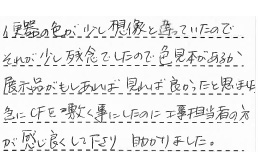 便器の色が少し想像と違っていたので
それが少し残念でしたので色見本があるか
展示品がもしあれば見れば良かったと思ました
急にCFを敷く事にしたのに工事担当者の方
が感じ良くして下さり助かりました。